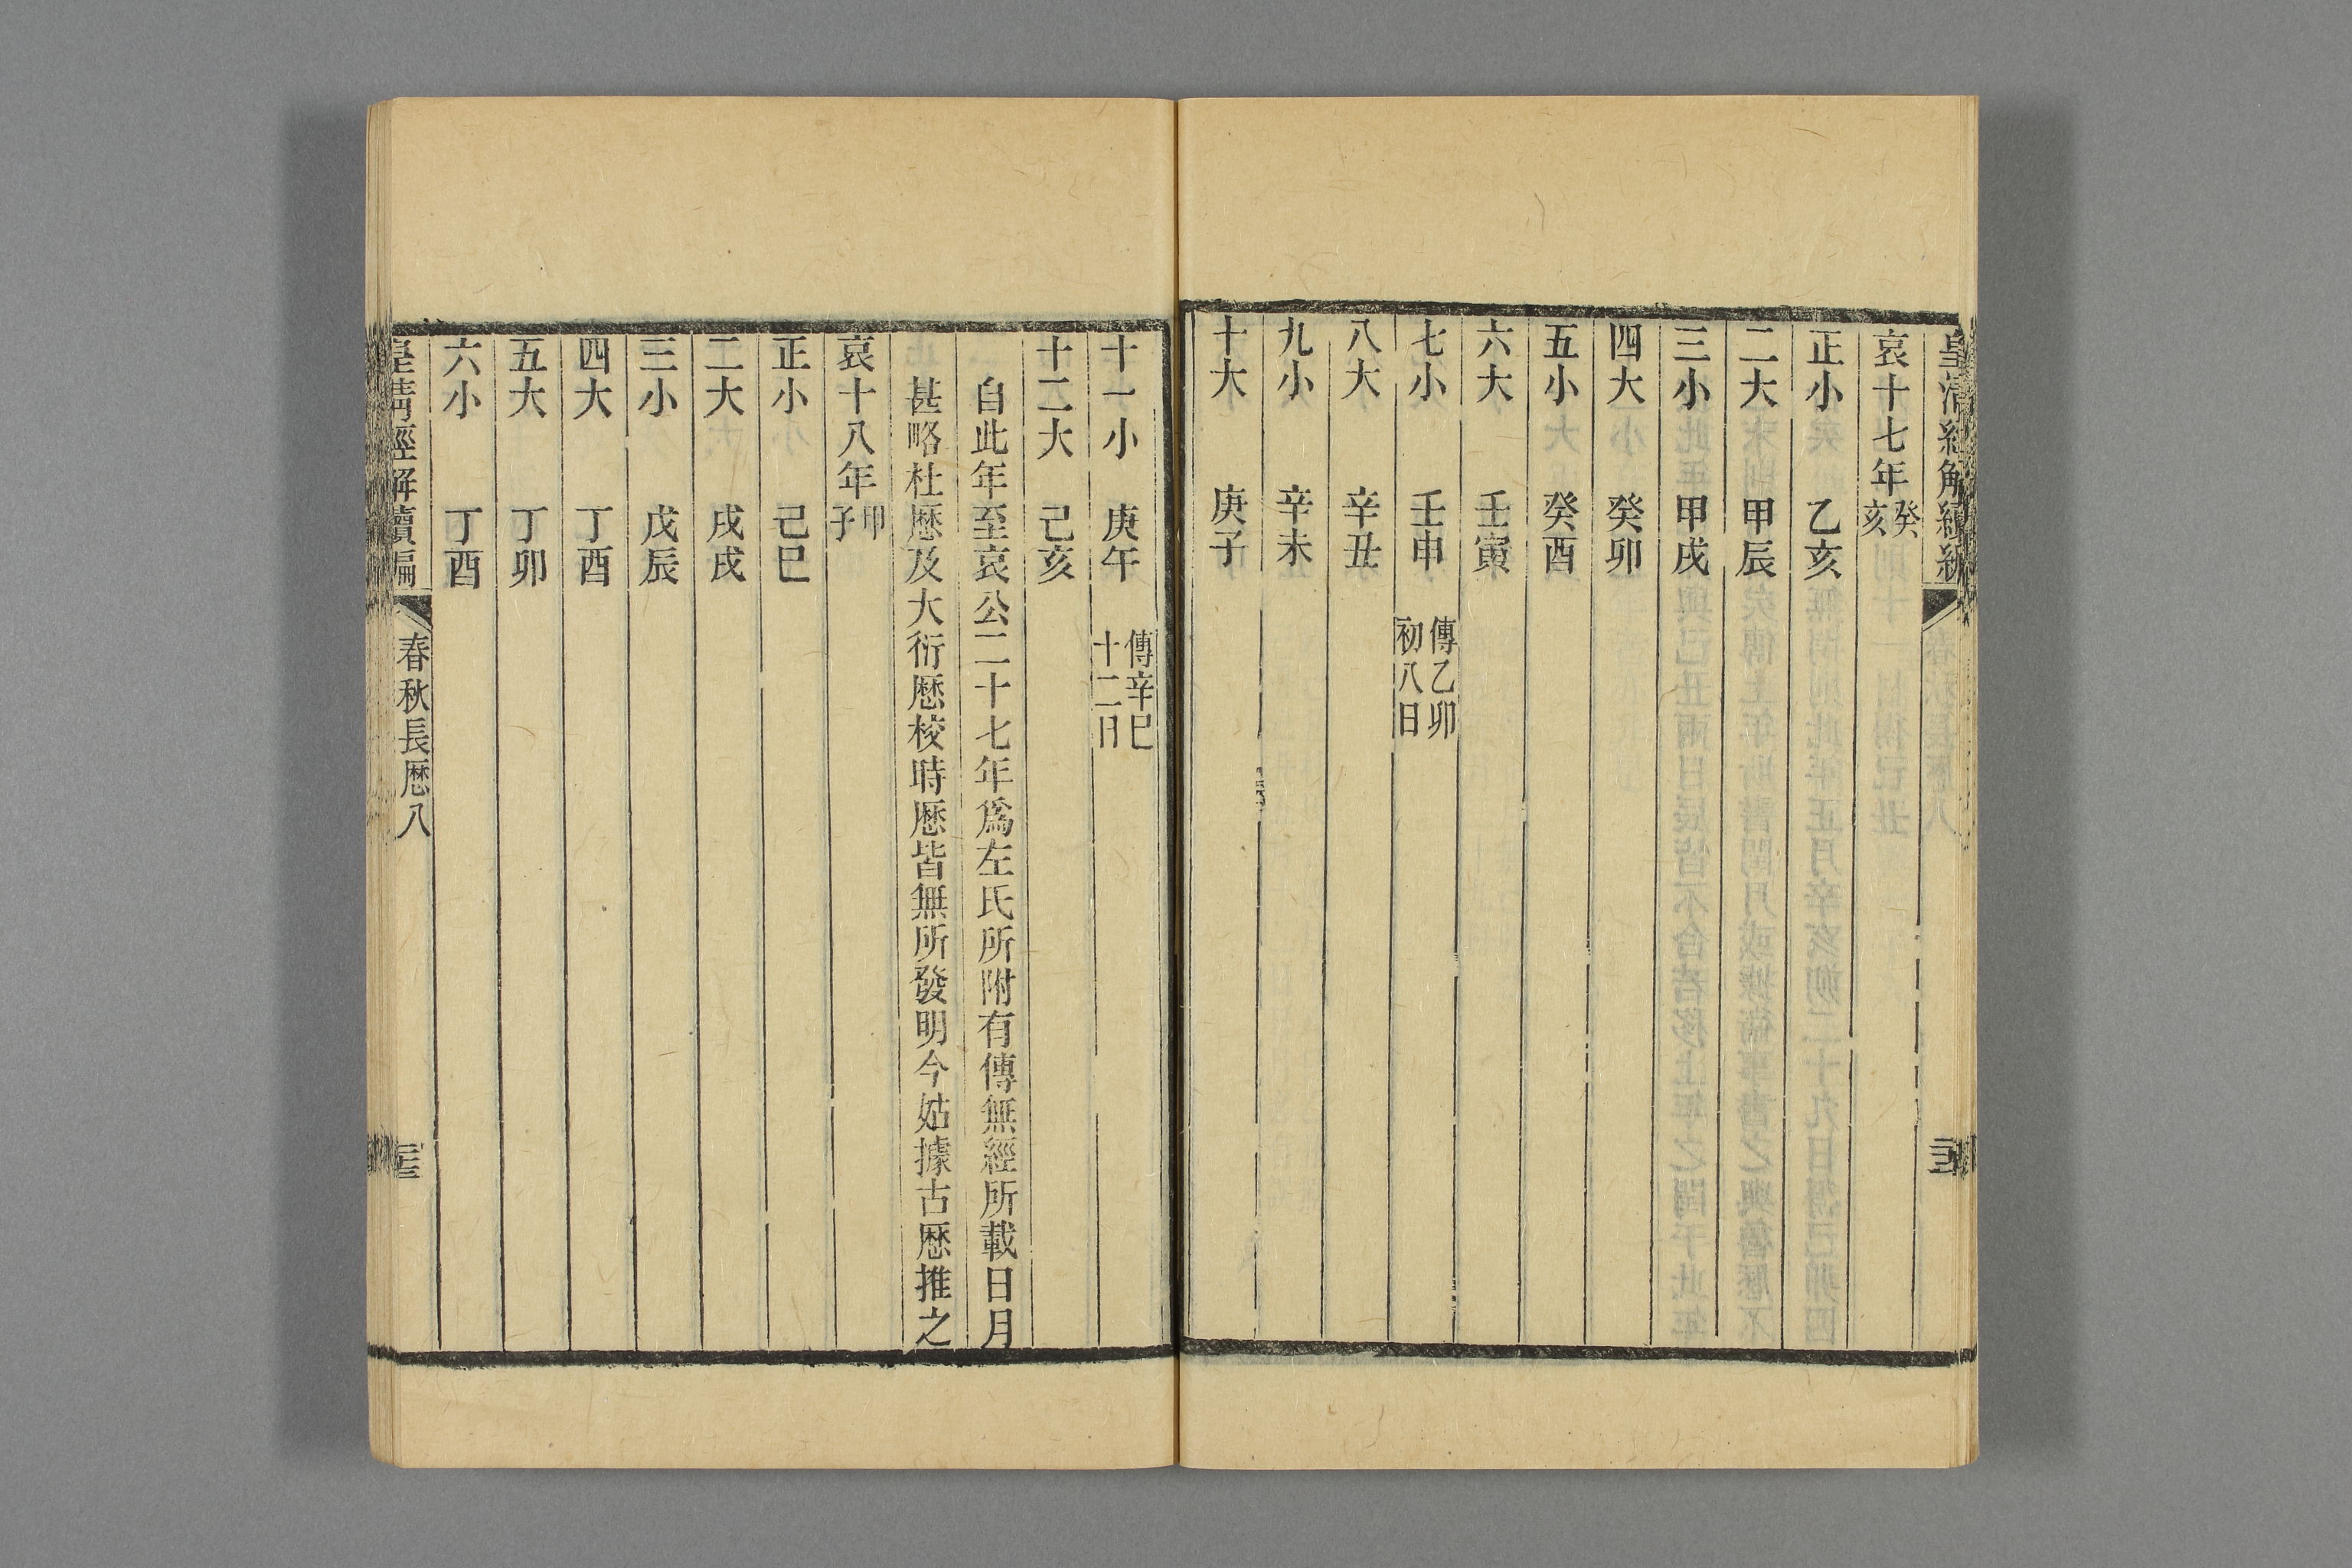 皇清經解續編
哀十七年癸亥
正小 乙亥
二大 甲辰
三小 甲戌
四大 癸卯
五小 癸酉
六大 壬寅
七小 壬申 傳乙卯初八日
八大 辛丑
九小 辛未
十大 庚子
十一小 庚午 傳辛巳十二日
十二大 己亥
自此年至哀公二十七年爲左氏所附有傳無經所載日月
甚略杜厯及大衍厯校時厯皆無所發明今姑據古厯推之
哀十八年甲子
正小 己巳
二大 戌戌
三小 戊辰
四大 丁酉
五大 丁卯
六小 丁酉
皇淸經解續編 春秋長厯八